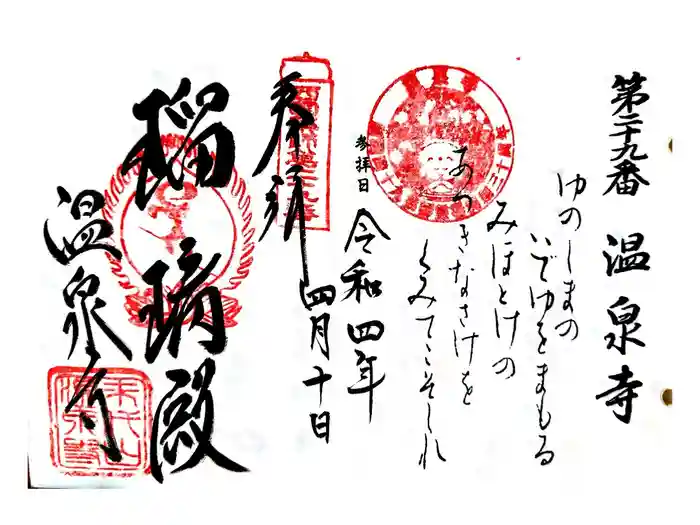 第二十九番 温泉寺
ゆのしまの
いでゆをまもる
みほとけの
あつきなさけを
くみてこそしれ
参拝日
令和四年
四月十日
奉拝
瑠璃殿
温泉寺